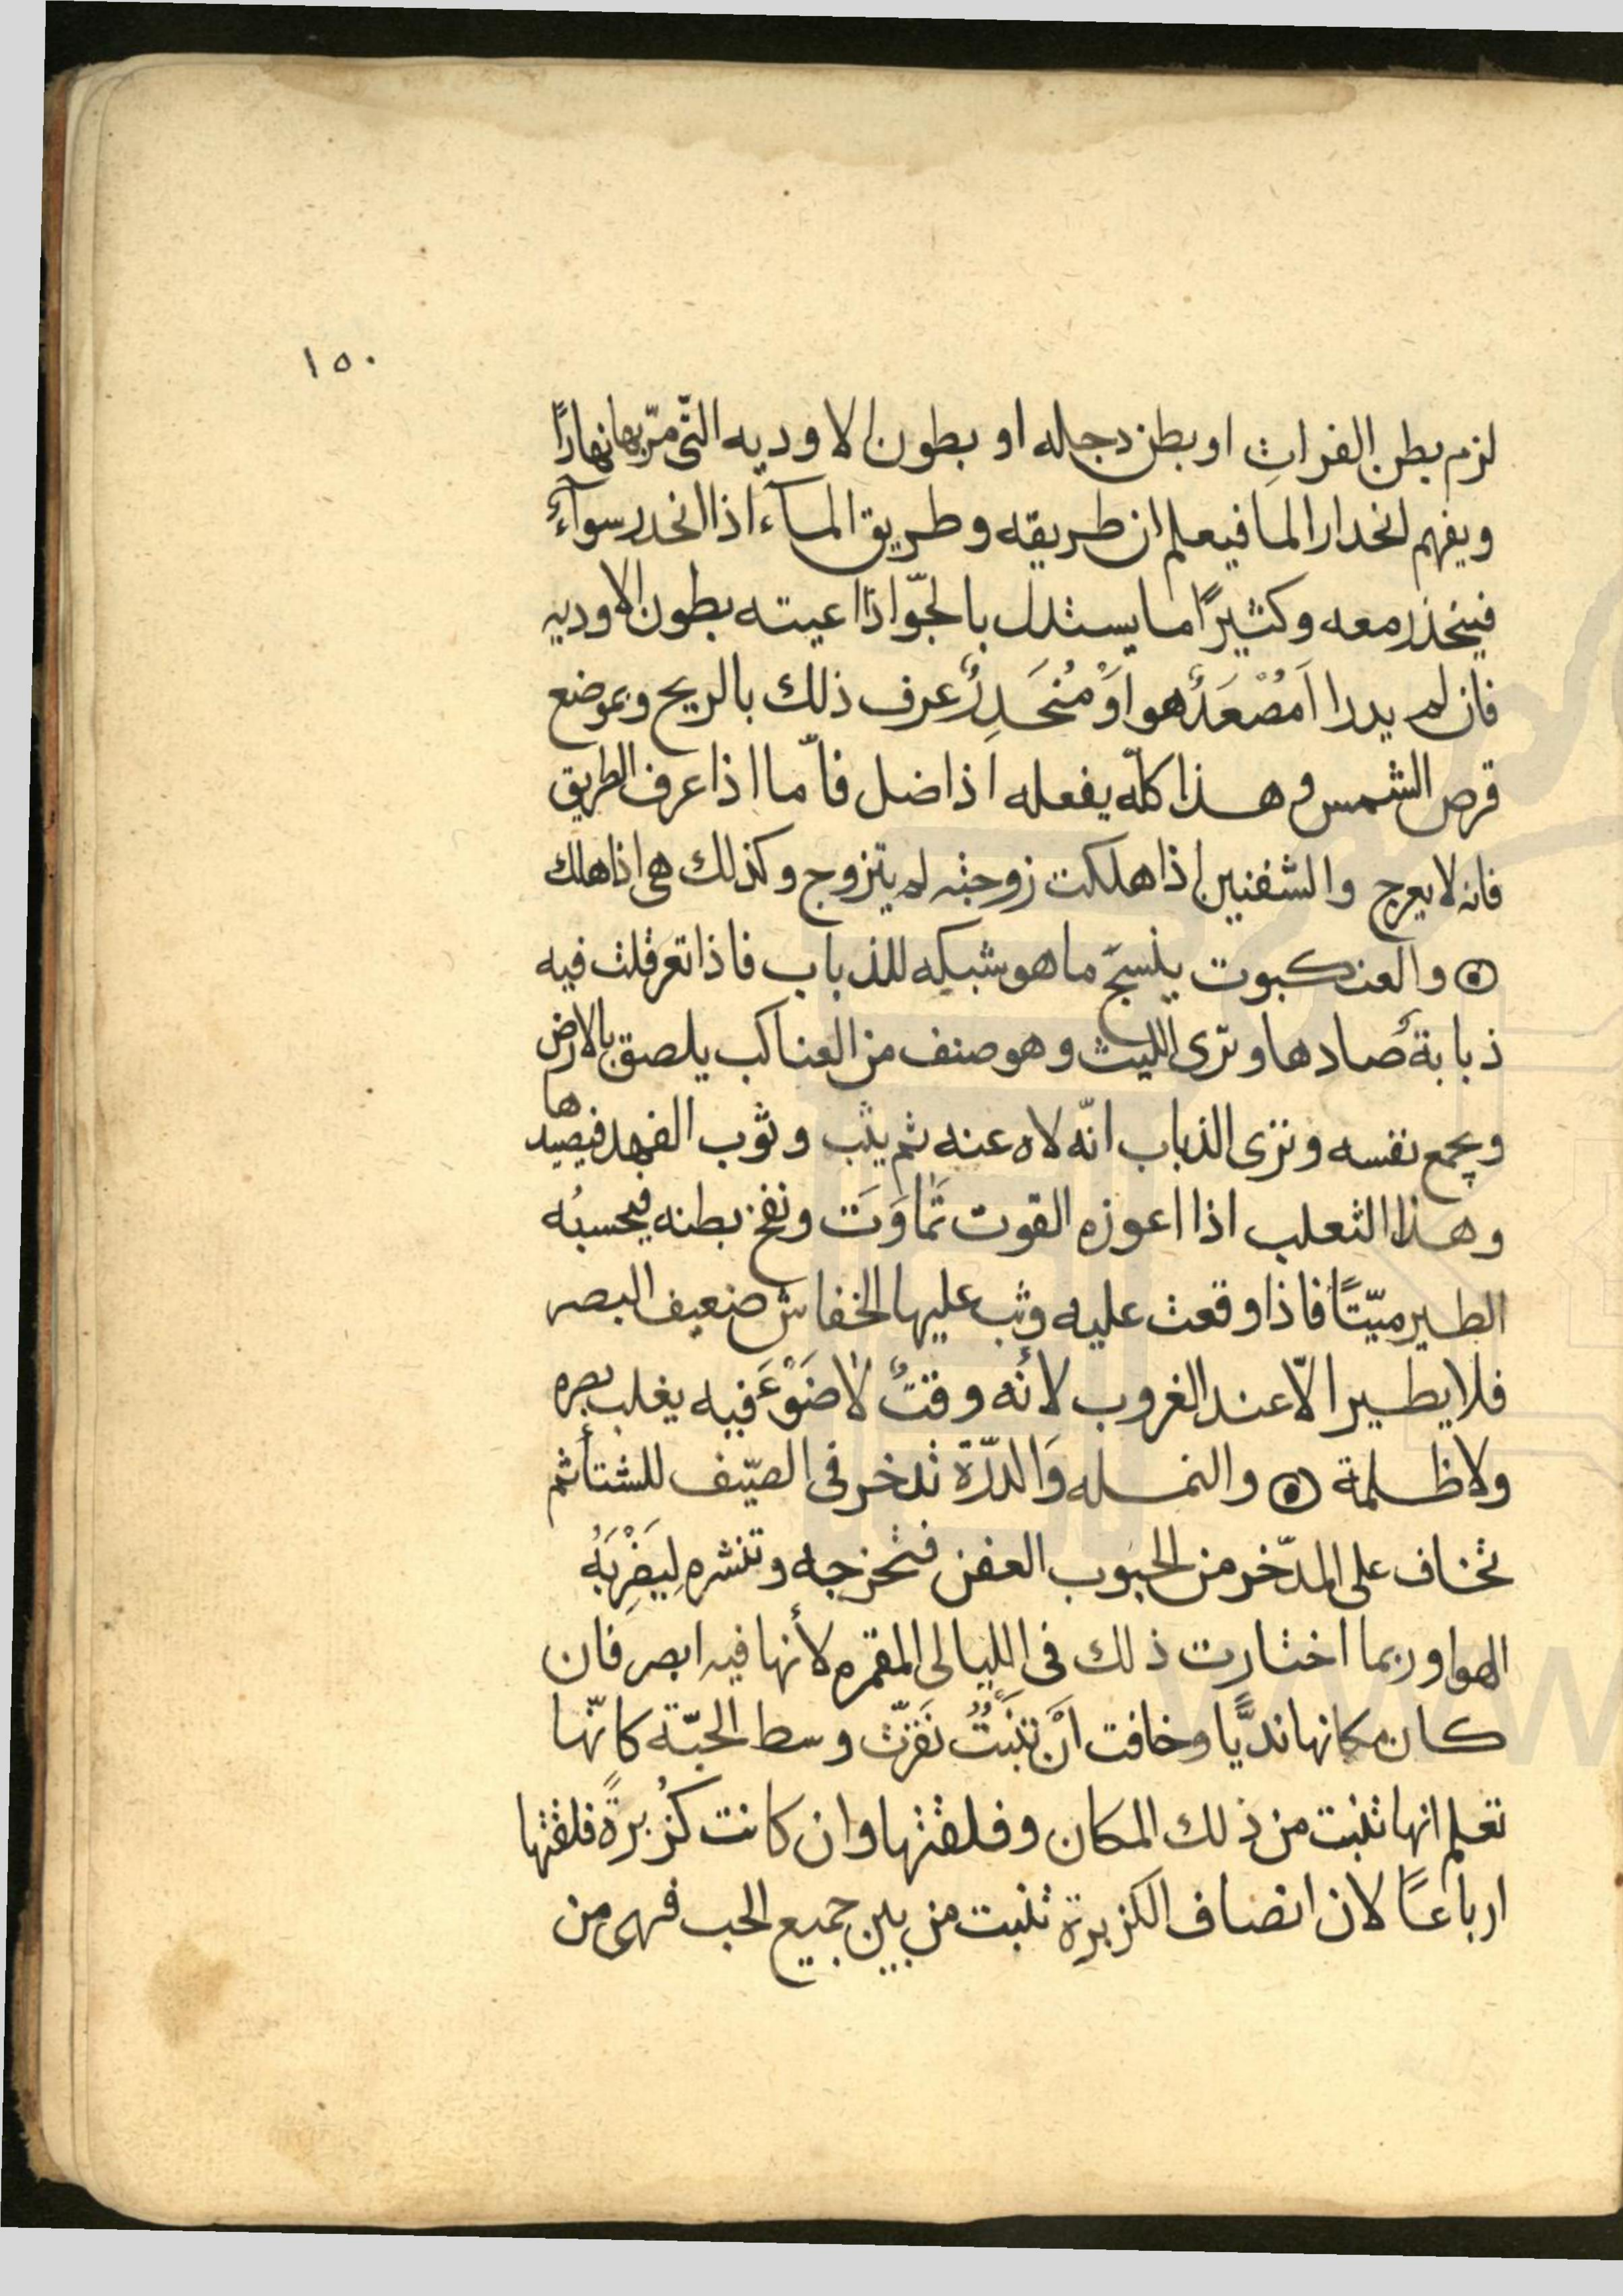 ١٥٠
لزم بطن الفراتِ او بطن دجله او بطون الاوديه التّى مرّ بها نهارًا
ويفهم انحدار الما فيعلم ان طريقه وطريق المآء اذا انحدر سوآءٌ
فينحذر معه وكثيرًا ما يستدل بالجّو اذا اعيته بطون الاوديه
فان لم يدر اَمُصْعَدٌ هو اَوْ مُنحَدِرٌ عرف ذلك بالريح وبموضع
قرص الشمس وهذا كلّه يفعله اذا ضل فأمّا اذا عرف الطريق
فانه لا يعرج والشفنين اذا هلكت زوجته لم يتزوج وكذلك هى اذا هلك
۞ والعنكبوت ينسجَ ما هو شبكه للذباب فاذا تعرقلت فيه
ذبابةٌ صادها وترى الليث وهو صنف من العناكب يلصق بالارض
ويجمع نفسه وترى الذباب انّه لاه عنه ثم يثب وثوب الفهد فيصيدها
وهذا الثعلب اذا اعوزه القوت تَماوَتَ ونفخ بطنه فيحسبُه
الطير ميّتًا فاذا وقعت عليه وثب عليها الخفاش ضعيف البصر
فلا يطير الّا عند الغروب لأنه وقتٌ لا ضَوْءَ فيه يغلب بصره
ولا ظلمة ۞ والنمله وَالذرّة تدخر فى الصيّف للشتأ ثم
تخاف على المدّخر من الحبوب العفن فتخرجه وتنشره لِيَضْرِبَهُ
الهوا وربما اختارت ذلك فى الليالى المقمره لأنها فيه ابصر فان
كان مكانها نديًّا وخافت اَنْ تنَبتُ نقرتّ وسط الحبّة كانّها
تعلم انها تنبت من ذلك المكان وفلقتها وان كانت كُزبرةً فلقتها
ارباعًا لان انصاف الكزبرة تنبت من بين جميع الحب فهى من